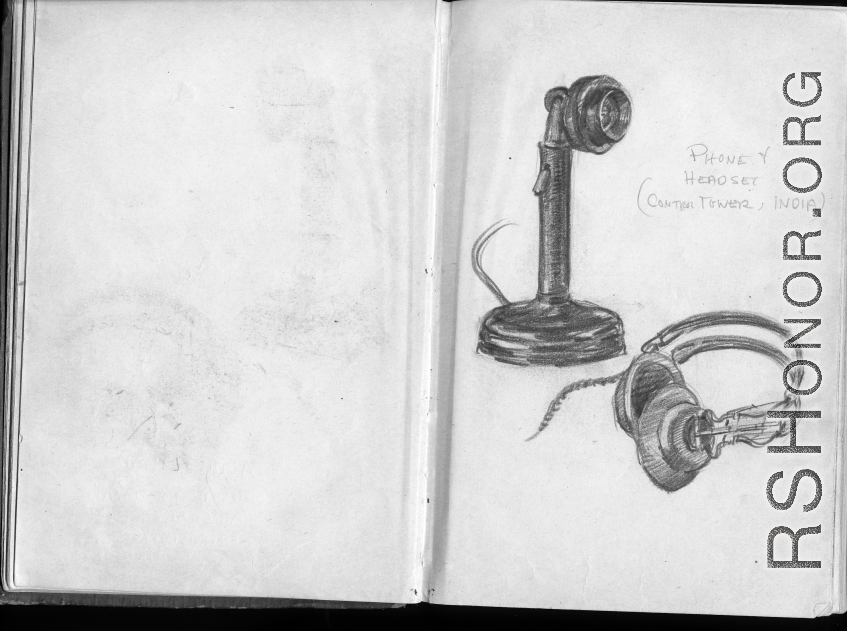 PHONE &
HEADSET
(CONTROL TOWER, INDIA)
RSHONOR.ORG